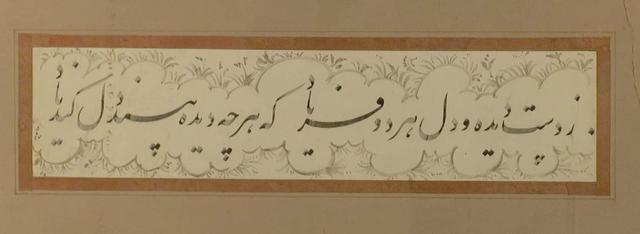 ز دست دیده و دل هر دو فریاد که هر چه دیده بیند دل کند یاد